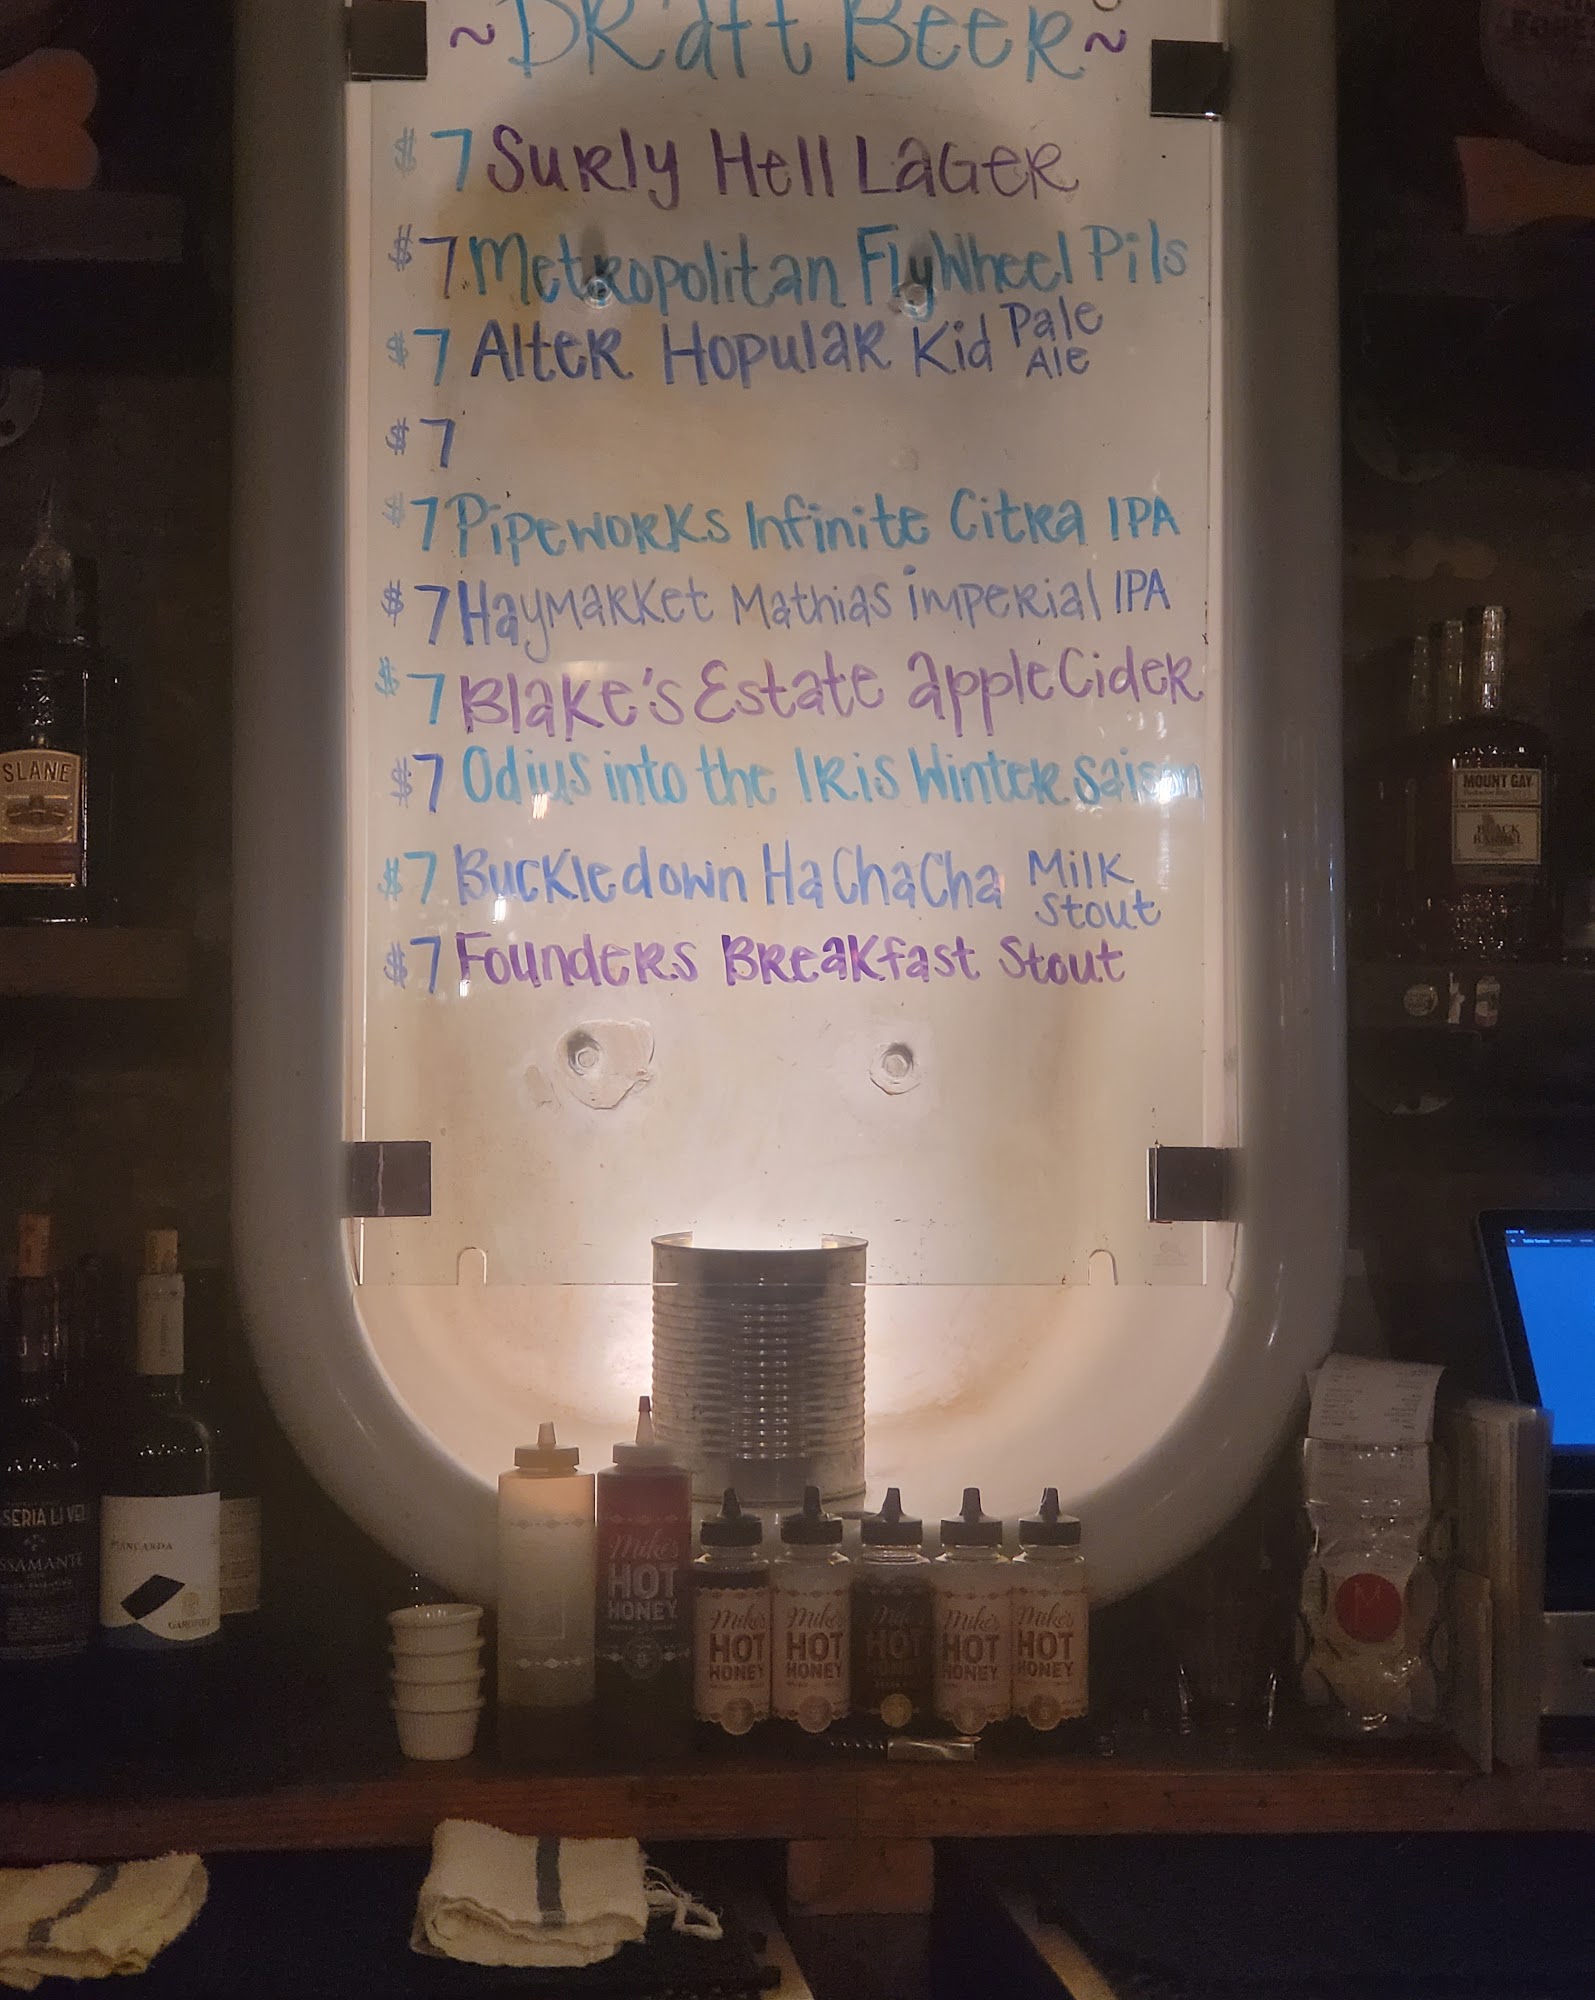 ~Draft Beer~
$7 Surly Hell Lager
$7 Metropolitan FlyWheel Pils
$7 Alter Hopular Kid Pale Ale
$7
$7 Pipeworks Infinite Citra IPA
$7 Haymarket Mathias imperial IPA
$7 Blake's Estate apple Cider
$7 Odius into the Iris Winter Saison
$7 Buckledown HaChaCha Milk Stout
$7 Founders Breakfast Stout
SLANE
MOUNT GAY
BLACK
BARREL
Mike's
HOT
HONEY
Mike's
HOT
HONEY
Mike's
HOT
HONEY
Mike's
HOT
HONEY
Mike's
HOT
HONEY
Mike's
HOT
HONEY